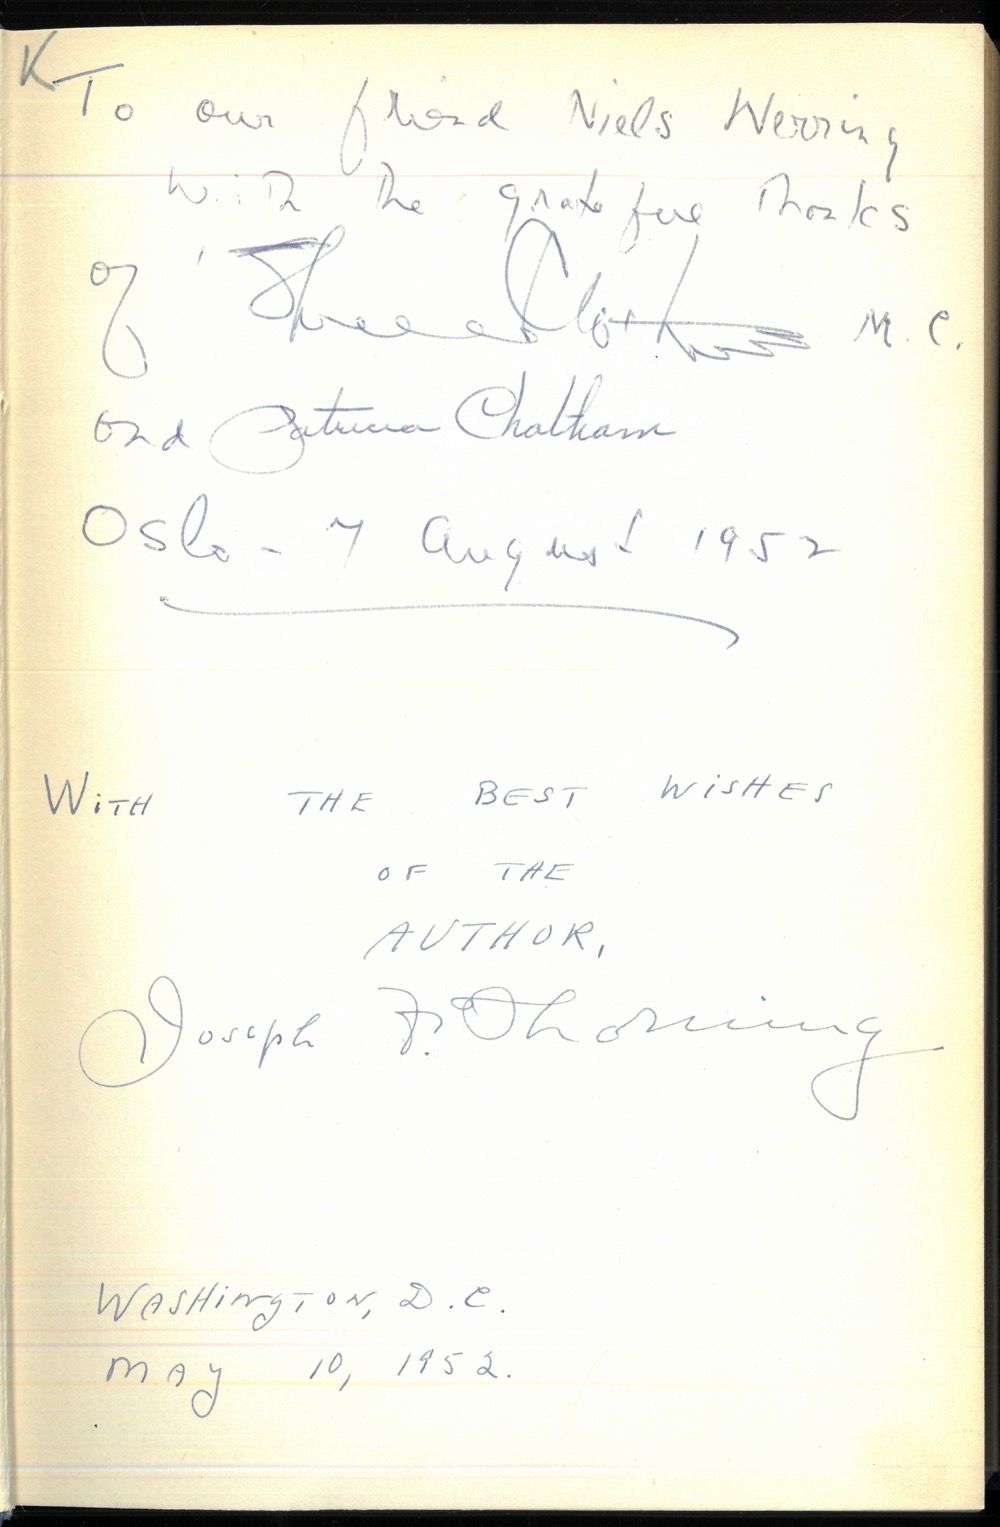 K
To our friend Niels Werring
with the grateful thanks
of Thurmond Chatham M.C.
and Patricia Chatham
Oslo - 7 August 1952
WiTH THE BEST WiSHES
OF THE
AUTHOR,
Joseph F. Thorning
WASHington, D.C.
MAy 10, 1952.